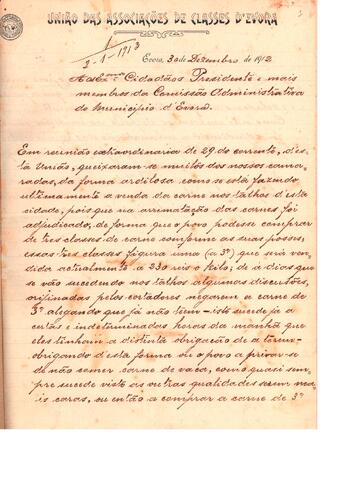 UNIÃO DAS ASSOCIAÇÕES DE CLASSES D'EVORA
3-1-1913
Evora, 30 de Dezembro de 1912
Cidadãos Presidente e mais
membros da Comissão Administrativa
do Municipio d'Evora
Em reunião extraordinaria de 29 do corrente, d'es-
ta União, queixaram-se muitos dos nossos cama-
radas, da forma ardilosa como se está fazendo
ultimamente a venda da carne nos talhos d'esta
cidade, pois que na arrematação das carnes foi
adjudicado, de forma que o povo podesse comprar
de tres classes de carne conforme as suas posses,
essas tres classes figura uma (a 3ª) que será ven-
dida actualmente a 230 reis o kilo; de a dias que
se vão sucedendo nos talhos algumas discussões,
originadas pelos cortadores negarem a carne de
3ª alegando que já não tem - isto sucede já a
certas e indeterminadas horas da manhã que
eles tenham a distinta obrigação de a terem -
obrigando d'esta forma ou o povo a privar-se
de não comer carne de vaca, como quasi sem-
pre sucede visto as outras qualidades serem ma-
is caras, ou então a comprar a carne de 3ª